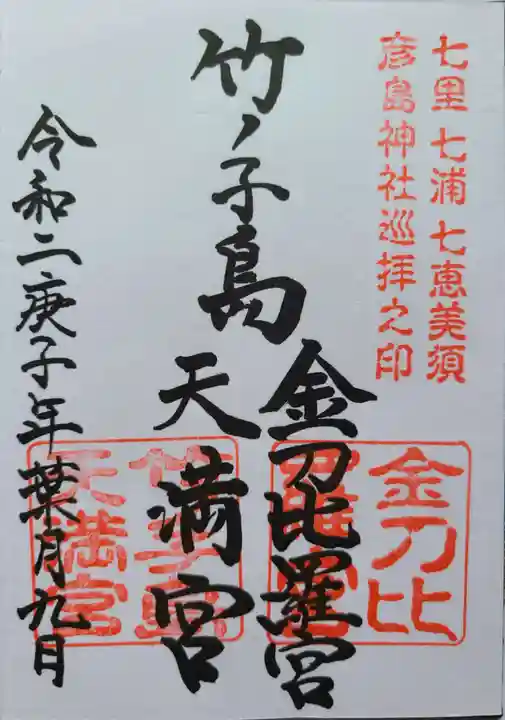 七里七浦七恵美須
彦島神社巡拝之印
竹ノ子島
金刀比羅宮
天満宮
令和二庚子年葉月九日
金刀比
羅宮
竹子島
天満宮